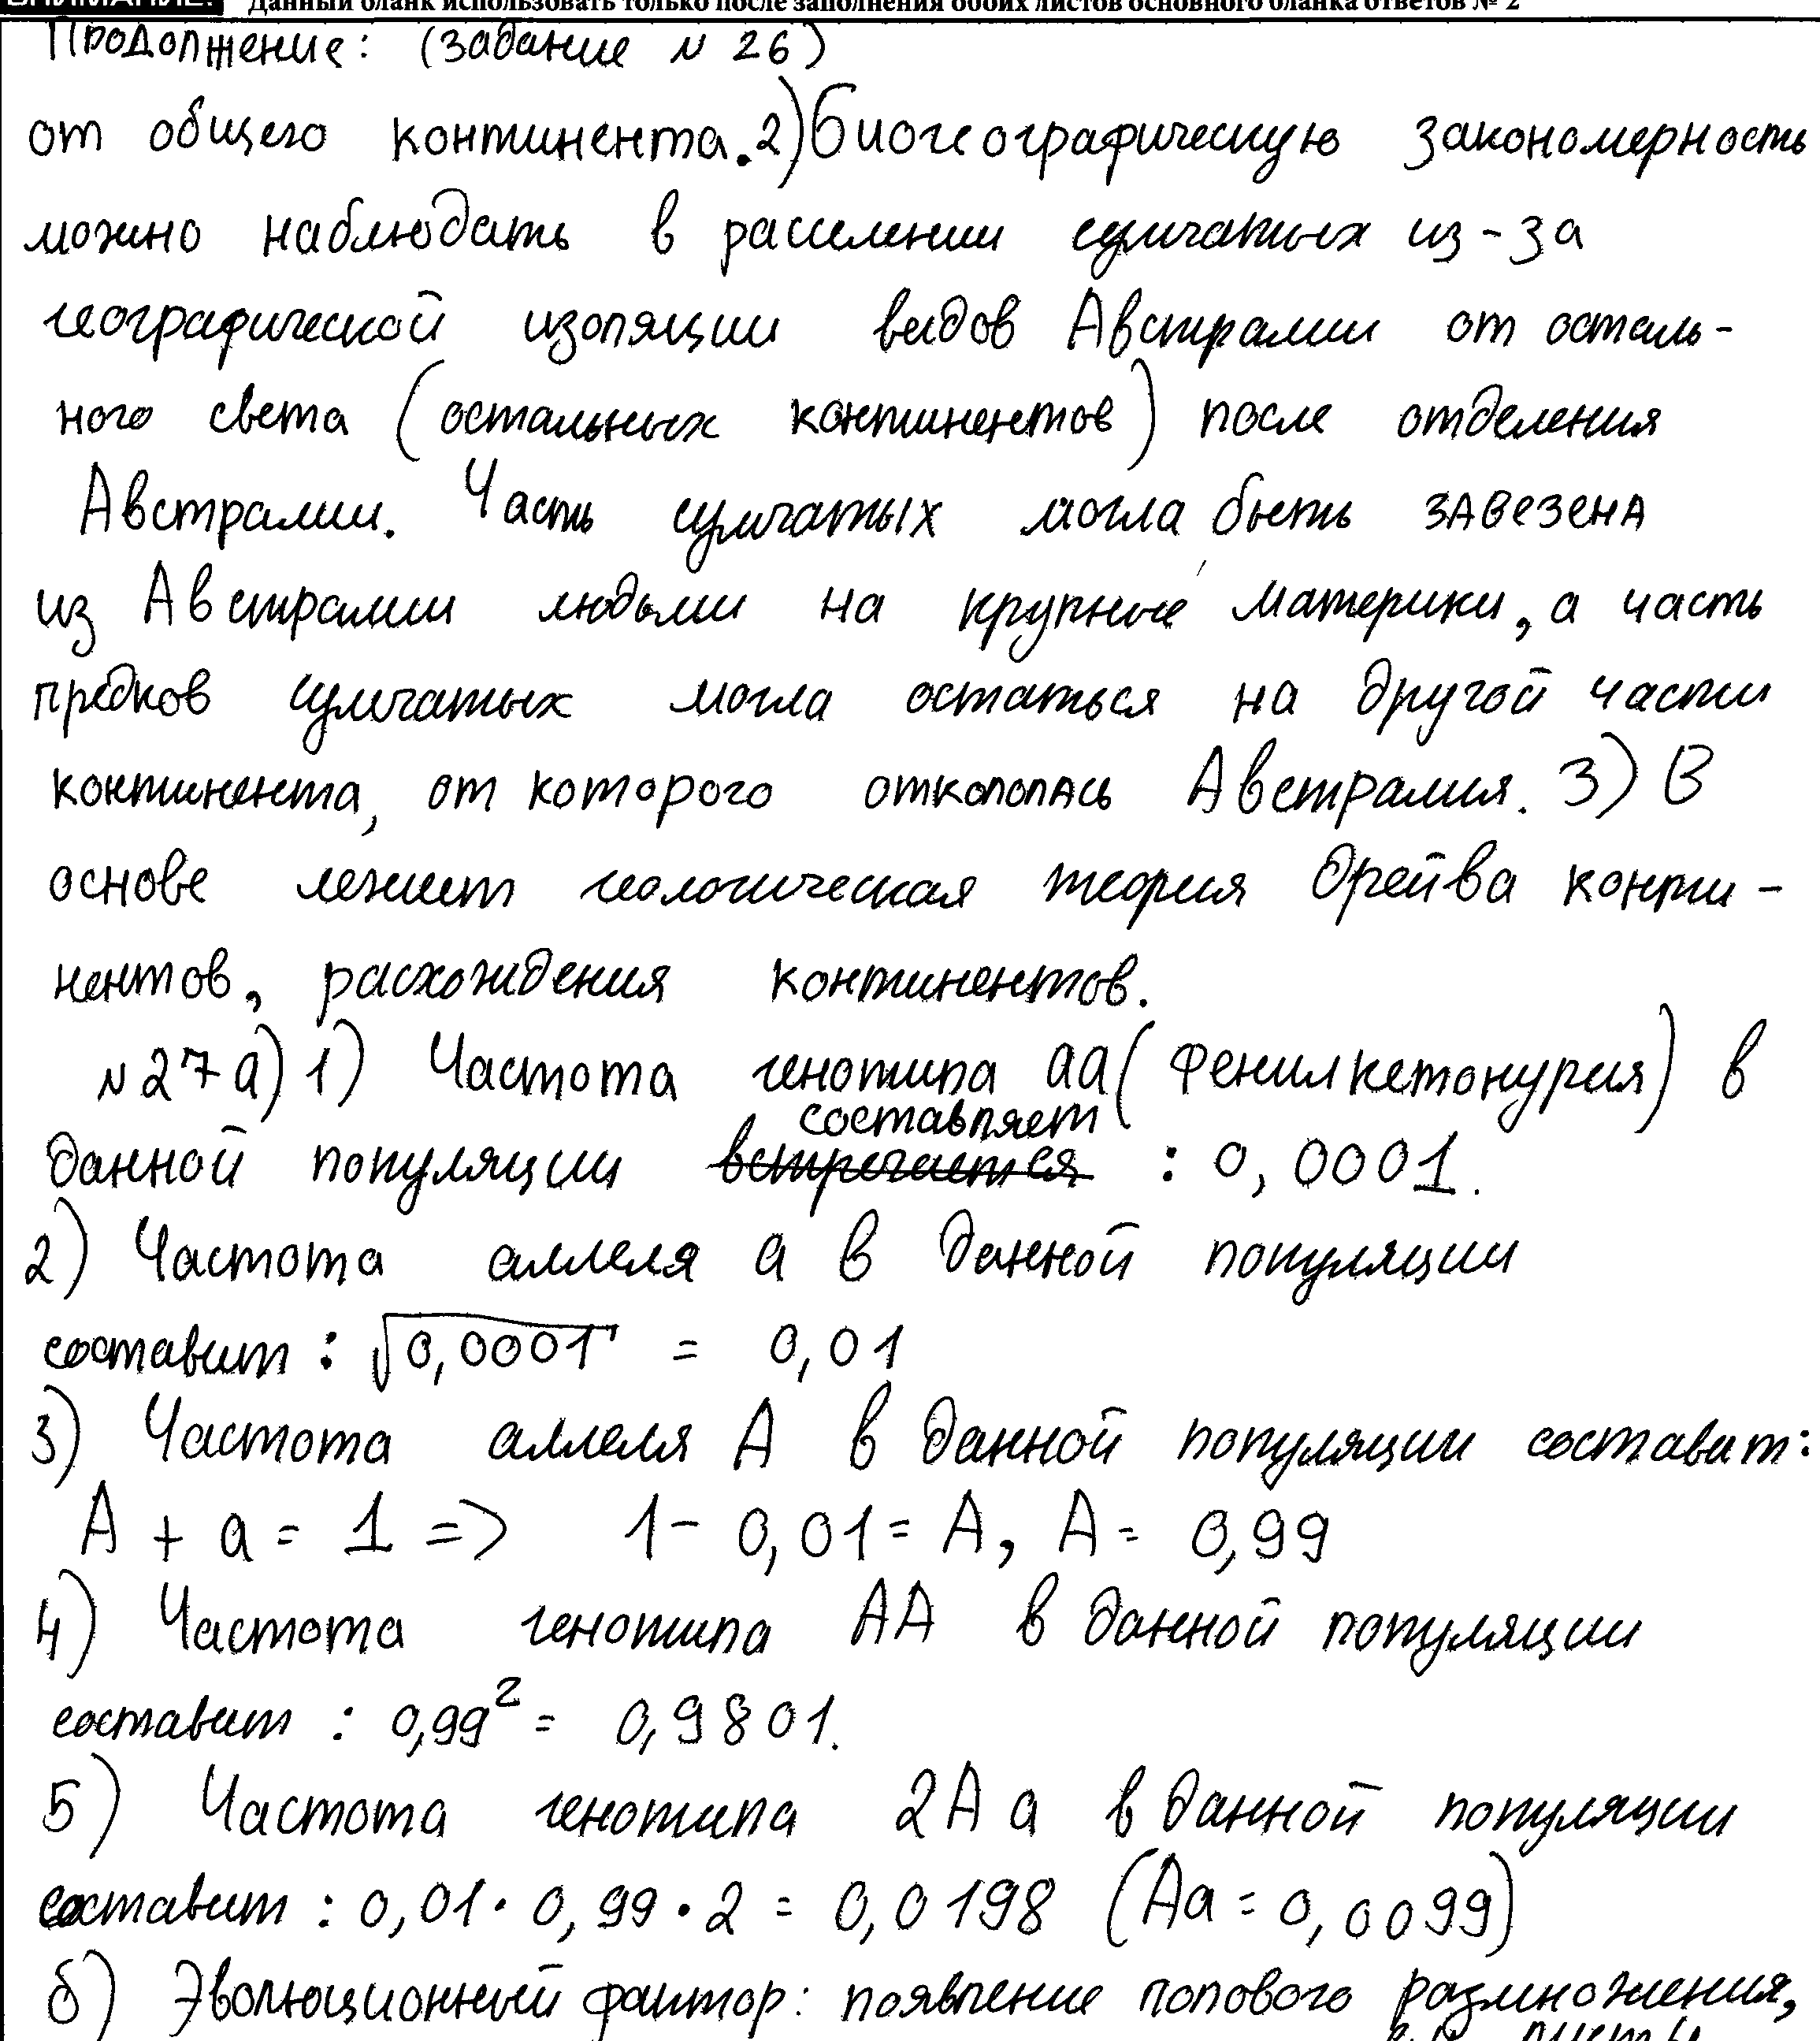 ВНИМАНИЕ! Данный бланк использовать только после заполнения обоих листов основного бланка ответов № 2
Продолжение: (задание № 26)
от общего континента. 2) биогеографическую закономерность
можно наблюдать в расселении сумчатых из-за
географической изоляции видов Австралии от осталь-
ного света (остальных континентов) после отделения
Австралии. Часть сумчатых могла быть завезена
из Австралии людьми на крупные материки, а часть
предков сумчатых могла остаться на другой части
континента, от которого откололась Австралия. 3) В
основе лежит геологическая теория дрейва конти-
нентов, расхождения континентов.
№27 а) 1) Частота генотипа аа (фенилкетонурия) в
составляет
данной популяции встречается : 0,0001.
2) Частота аллеля а в данной популяции
составит : √0,0001 = 0,01
3) Частота аллеля А в данной популяции составит:
А + а = 1 => 1 - 0,01 = А, А = 0,99
4) Частота генотипа АА в данной популяции
составит : 0,99² = 0,9801.
5) Частота генотипа 2Аа в данной популяции
составит : 0,01 · 0,99 · 2 = 0,0198 (Аа = 0,0099)
б) Эволюционный фактор: появление полового размножения,